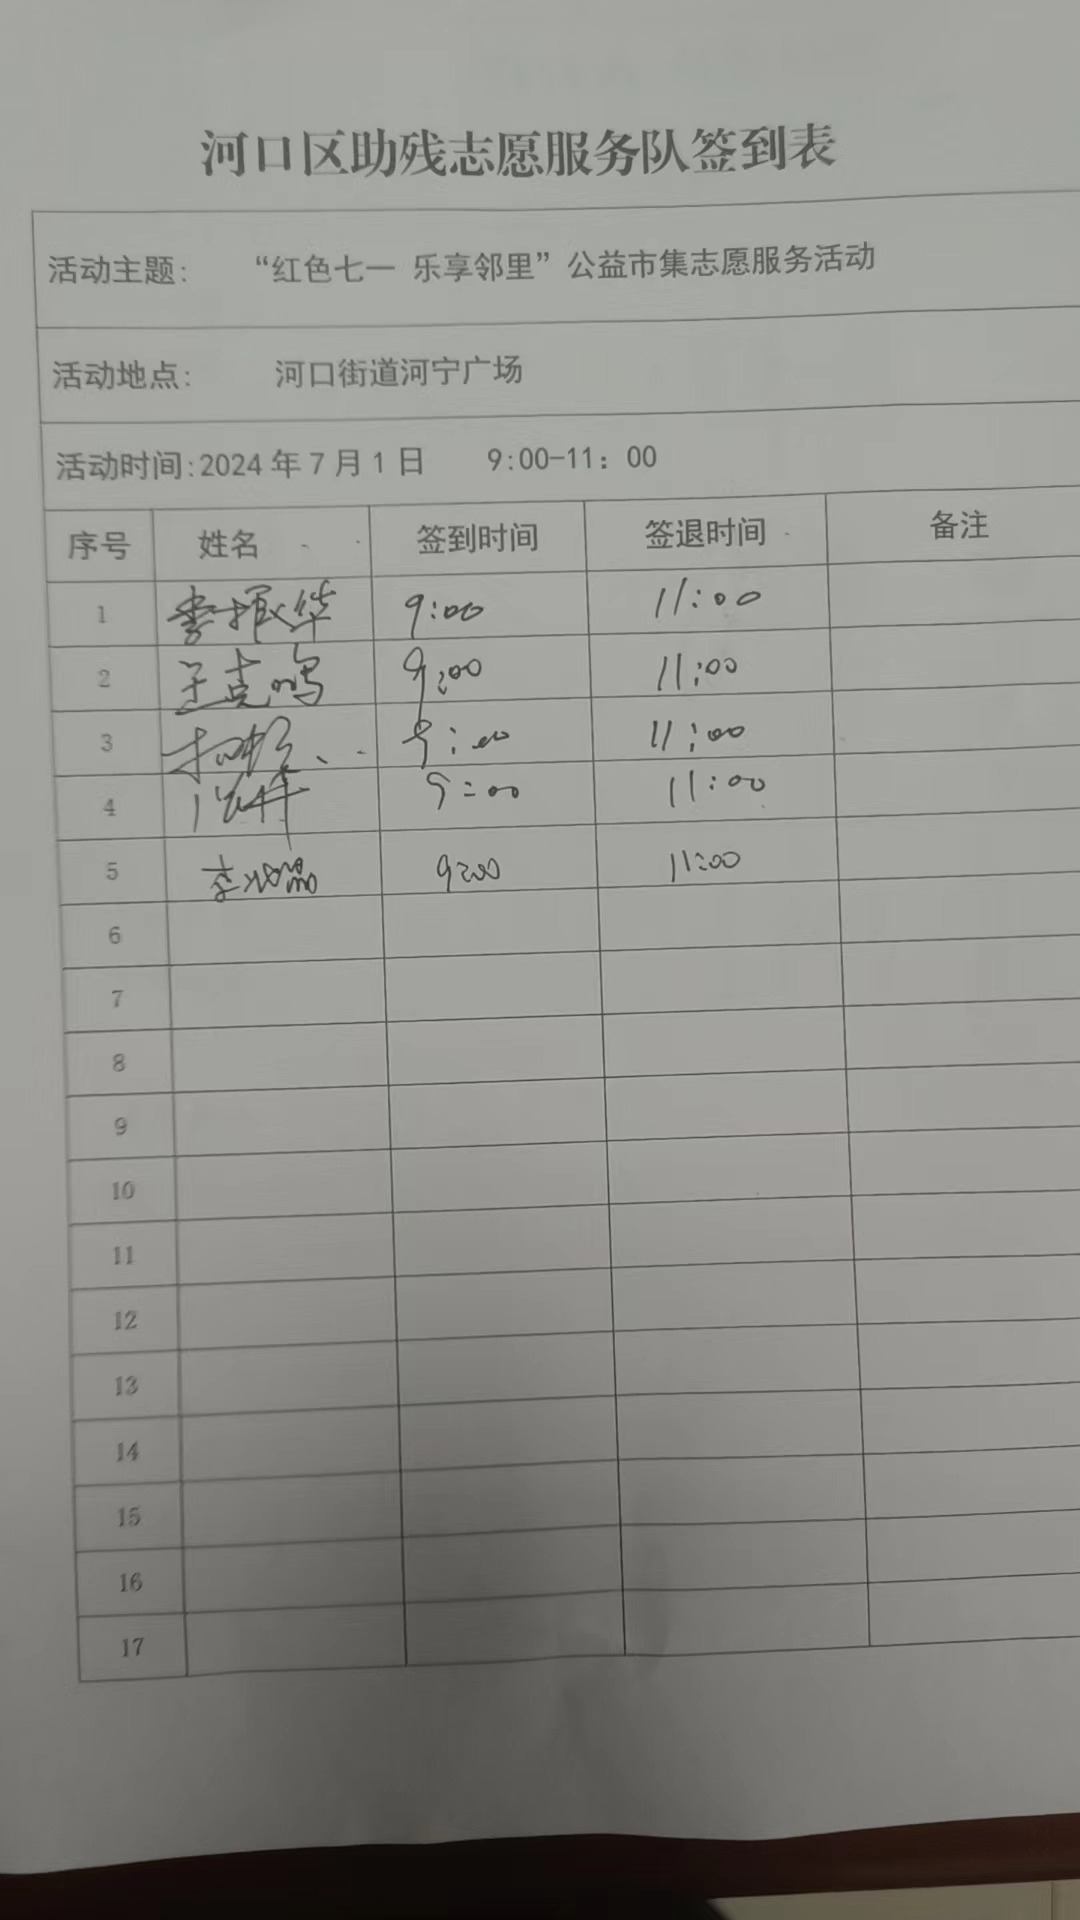 河口区助残志愿服务队签到表
活动主题: “红色七一 乐享邻里”公益市集志愿服务活动
活动地点: 河口街道河宁广场
活动时间:2024年7月1日 9:00-11：00
序号 姓名 签到时间 签退时间 备注
1 李振华 9:00 11:00
2 王克鸣 9:00 11:00
3 9:00 11:00
4 9:00 11:00
5 9:00 11:00
6
7
8
9
10
11
12
13
14
15
16
17